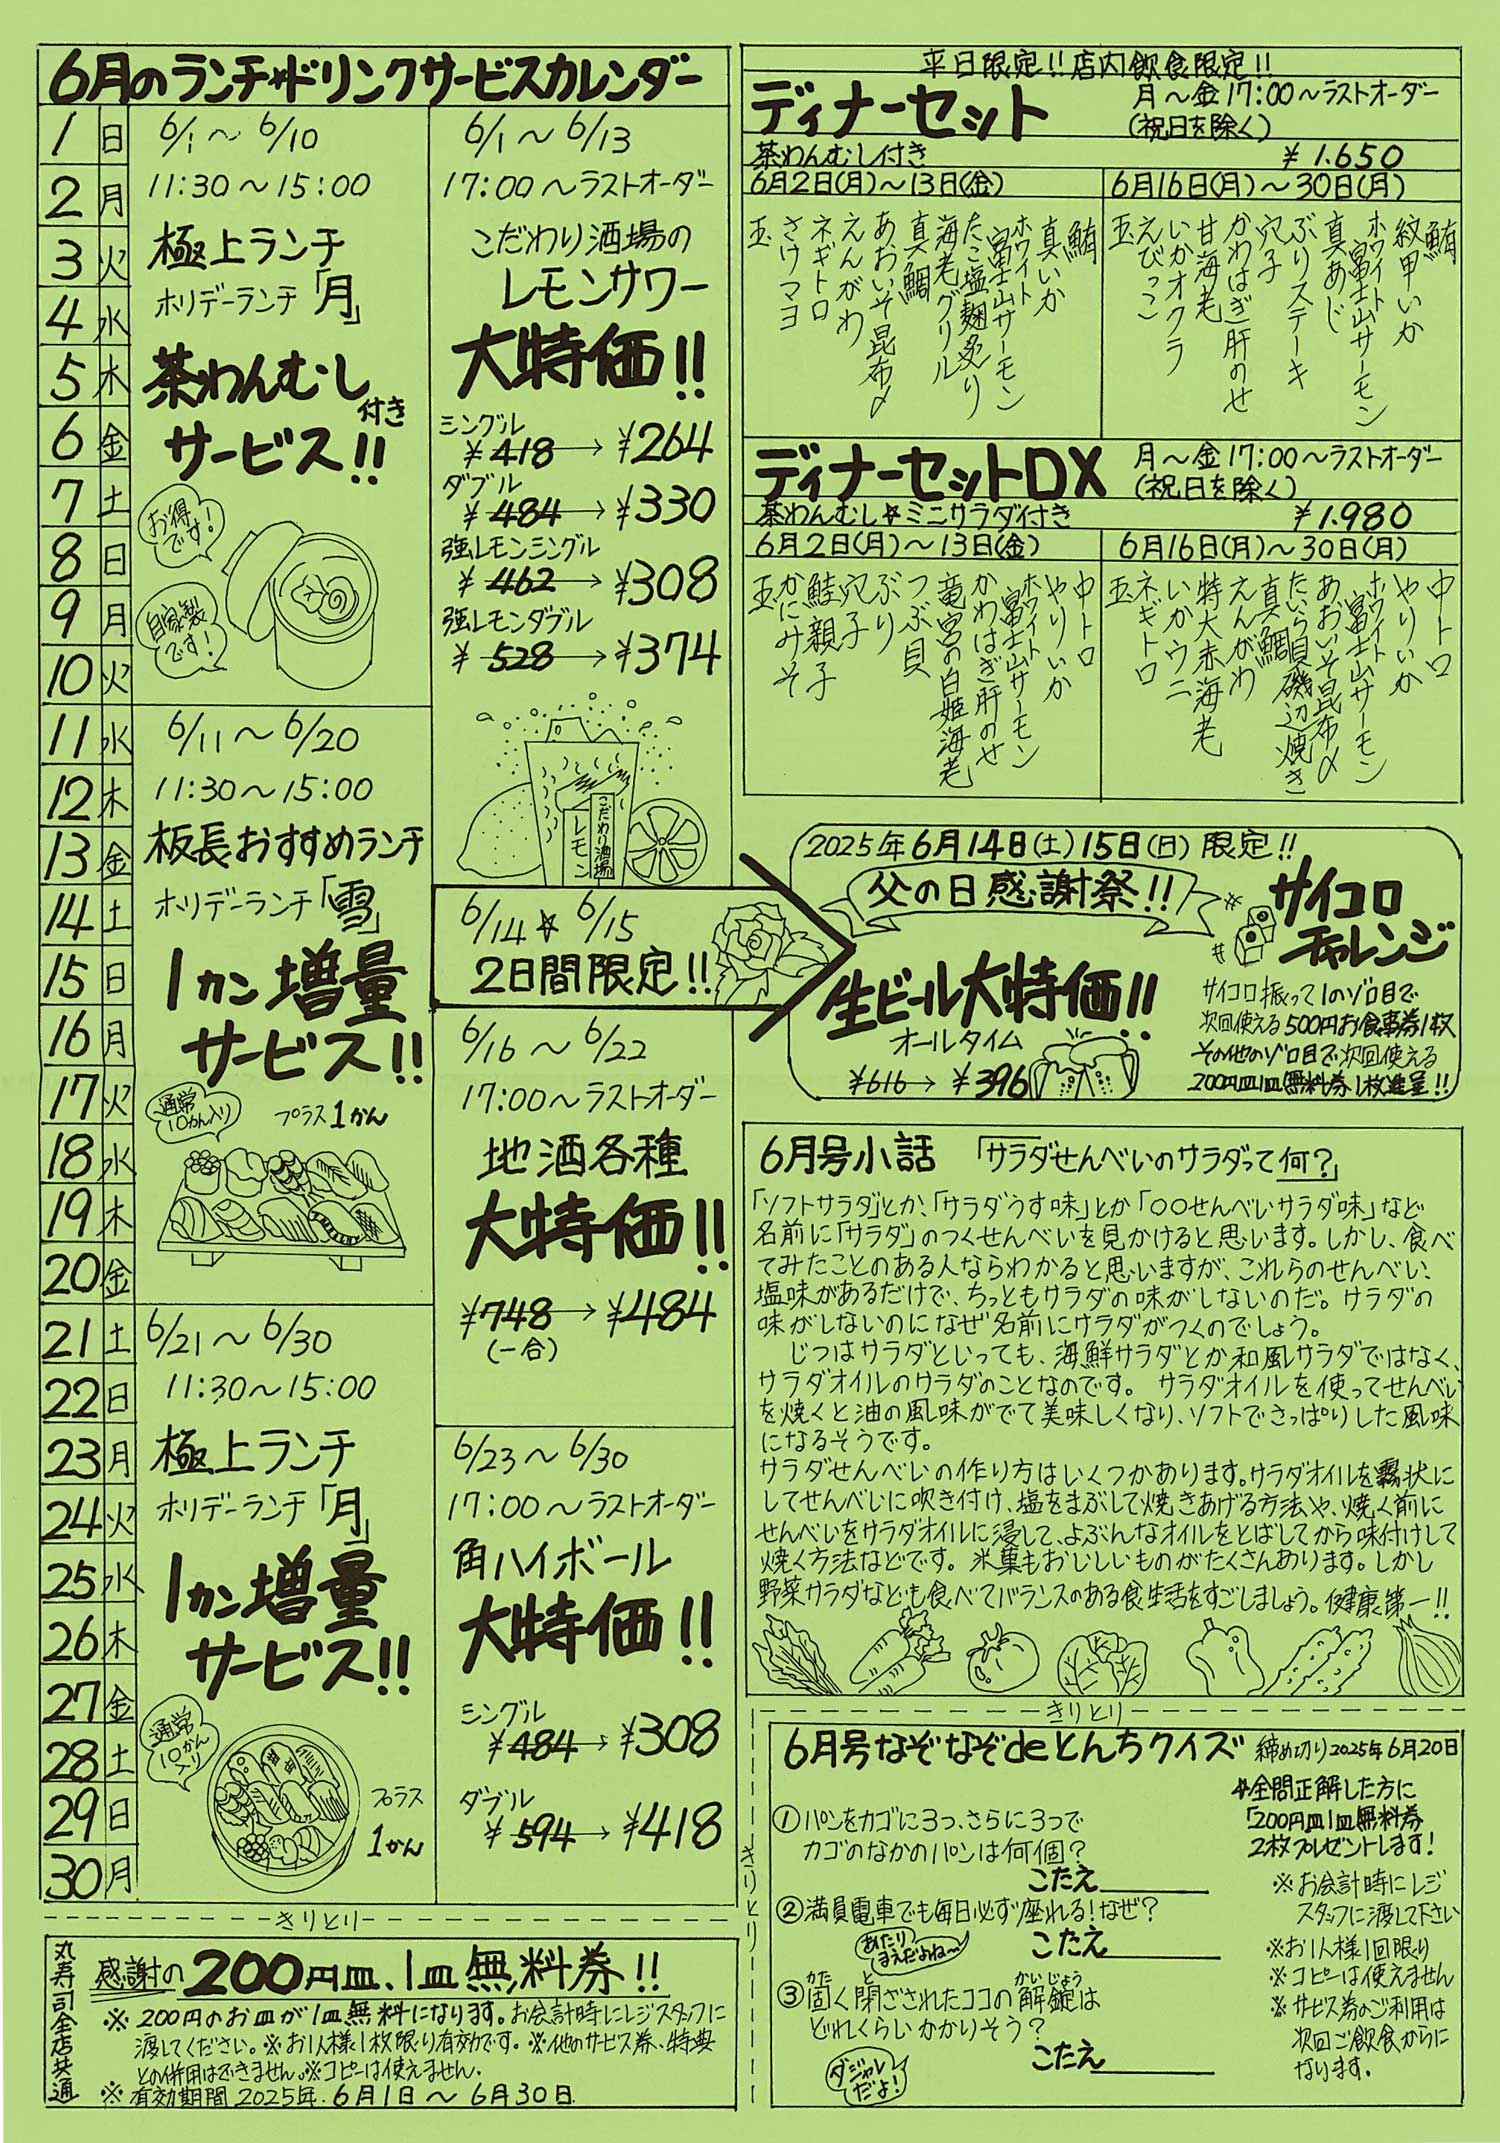 6月のランチ☆ドリンクサービスカレンダー
1 日
2 月
3 火
4 水
5 木
6 金
7 土
8 日
9 月
10 火
11 水
12 木
13 金
14 土
15 日
16 月
17 火
18 水
19 木
20 金
21 土
22 日
23 月
24 火
25 水
26 木
27 金
28 土
29 日
30 月
6/1～6/10
11:30～15:00
極上ランチ
ホリデーランチ「月」
茶わんむし付き
サービス!!
お得です!
自家製です!
6/11～6/20
11:30～15:00
板長おすすめランチ
ホリデーランチ「雪」
1カン増量
サービス!!
通常10かん入り
プラス1かん
6/21～6/30
11:30～15:00
極上ランチ
ホリデーランチ「月」
1カン増量
サービス!!
通常10かん入り
プラス
1かん
6/1～6/13
17:00～ラストオーダー
こだわり酒場の
レモンサワー
大特価!!
シングル
¥418→¥264
ダブル
¥484→¥330
強レモンシングル
¥462→¥308
強レモンダブル
¥528→¥374
こだわり酒場
レモン
6/14☆6/15
2日間限定!!
6/16～6/22
17:00～ラストオーダー
地酒各種
大特価!!
¥748→¥484
(一合)
6/23～6/30
17:00～ラストオーダー
角ハイボール
大特価!!
シングル
¥484→¥308
ダブル
¥594→¥418
平日限定!!店内飲食限定!!
ディナーセット
月～金17:00～ラストオーダー
(祝日を除く)
茶わんむし付き
¥1.650
6月2日(月)～13日(金)
鮪
真いか
ホワイト富士山サーモン
たこ塩麹炙り
海老グリル
真鯛
あおいそ昆布〆
えんがわ
ネギトロ
さけマヨ
玉
6月16日(月)～30日(月)
鮪
紋甲いか
ホワイト富士山サーモン
真あじ
ぶりステーキ
穴子
かわはぎ肝のせ
甘海老
いかオクラ
えびっこ
玉
ディナーセットDX
月～金17:00～ラストオーダー
(祝日を除く)
茶わんむし☆ミニサラダ付き
¥1.980
6月2日(月)～13日(金)
中トロ
やりいか
ホワイト富士山サーモン
かわはぎ肝のせ
竜宮の白姫海老
つぶ貝
ぶり
穴子
鮭親子
かにみそ
玉
6月16日(月)～30日(月)
中トロ
やりいか
ホワイト富士山サーモン
あおいそ昆布〆
たいら貝磯辺焼き
真鯛
えんがわ
特大赤海老
いかウニ
ネギトロ
玉
2025年6月14日(土)15日(日)限定!!
父の日感謝祭!!
生ビール大特価!!
オールタイム
¥616→¥396
サイコロ
チャレンジ
サイコロ振って1のゾロ目で
次回使える500円お食事券1枚
その他のゾロ目で次回使える
200円皿1皿無料券1枚進呈!!
6月号小話 「サラダせんべいのサラダって何?」
「ソフトサラダ」とか、「サラダうす味」とか「○○せんべいサラダ味」など
名前に「サラダ」のつくせんべいを見かけると思います。しかし、食べ
てみたことのある人ならわかると思いますが、これらのせんべい、
塩味があるだけで、ちっともサラダの味がしないのだ。サラダの
味がしないのになぜ名前にサラダがつくのでしょう。
じつはサラダといっても、海鮮サラダとか和風サラダではなく、
サラダオイルのサラダのことなのです。サラダオイルを使ってせんべい
を焼くと油の風味がでて美味しくなり、ソフトでさっぱりした風味
になるそうです。
サラダせんべいの作り方はいくつかあります。サラダオイルを霧状に
してせんべいに吹き付け、塩をまぶして焼きあげる方法や、焼く前に
せんべいをサラダオイルに浸して、よぶんなオイルをとばしてから味付けして
焼く方法などです。米菓もおいしいものがたくさんあります。しかし
野菜サラダなども食べてバランスのある食生活をすごしましょう。健康第一!!
きりとり
きりとり
6月号なぞなぞdeとんちクイズ 締め切り2025年6月20日
☆全問正解した方に
「200円皿1皿無料券
2枚プレゼントします!
①パンをカゴに3つ、さらに3つで
カゴのなかのパンは何個?
こたえ
②満員電車でも毎日必ず座れる!なぜ?
あたりまえだよね～
こたえ
③固く閉ざされたココの解錠は
かた と かいじょう
どれくらいかかりそう?
ダジャレだよ!
こたえ
※お会計時にレジ
スタッフに渡して下さい
※お1人様1回限り
※コピーは使えません
※サービス券のご利用は
次回ご飲食からに
なります。
きりとり
丸寿司全店共通
感謝の200円皿、1皿無料券!!
※200円のお皿が1皿無料になります。お会計時にレジスタッフに
渡してください。※お1人様1枚限り有効です。※他のサービス券、特典
との併用はできません。※コピーは使えません。
※有効期間2025年.6月1日～6月30日